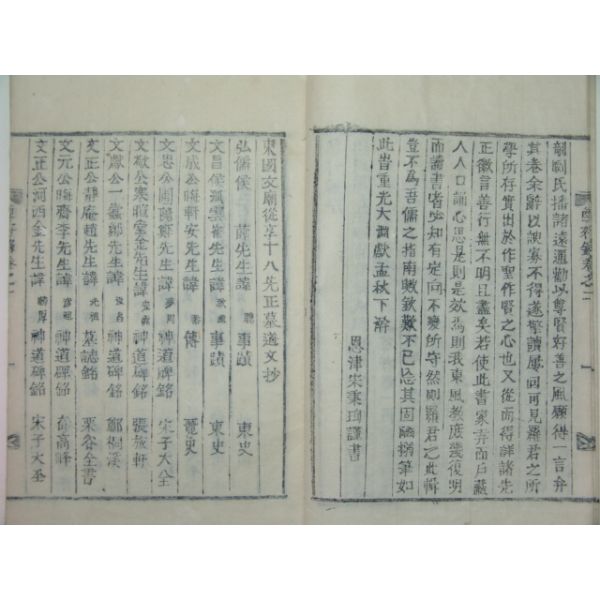 剞劂氏播諸遠邇勸以尊賢好善之風願得一言弁
其卷余辭以誤寡不得遂擎讀屢回可見羅君之所
學所存實出於作聖作賢之心也又從而得詳諸先
正徽言善行無不明且盡矣若使此書家弄而戶藏
人人口誦心思是則是效焉則我東風教庶幾復明
而讀書者必知有定向不變所守然則羅君乙此輯
豈不為吾儒之指南哉欽歎不已忘其固陋搦筆如
此昔重光大淵獻孟秋下澣
恩津宋秉珣謹書
東國文廟從享十八先正墓道文抄
弘儒侯 薛先生諱 聰 事蹟 東史
文昌侯孤雲崔先生諱 致遠 事蹟 東史
文成公晦軒安先生諱 裕 傳 麗史
文忠公圃隱鄭先生諱 夢周 神道碑銘 宋子大全
文敬公寒暄堂金先生諱 宏弼 神道碑銘 張旅軒
文獻公一蠹鄭先生諱 汝昌 神道碑銘 鄭桐溪
文正公靜庵趙先生諱 光祖 墓誌銘 栗谷全書
文元公晦齋李先生諱 彦迪 神道碑銘 奇高峰
文正公河西金先生諱 麟厚 神道碑銘 宋子大全